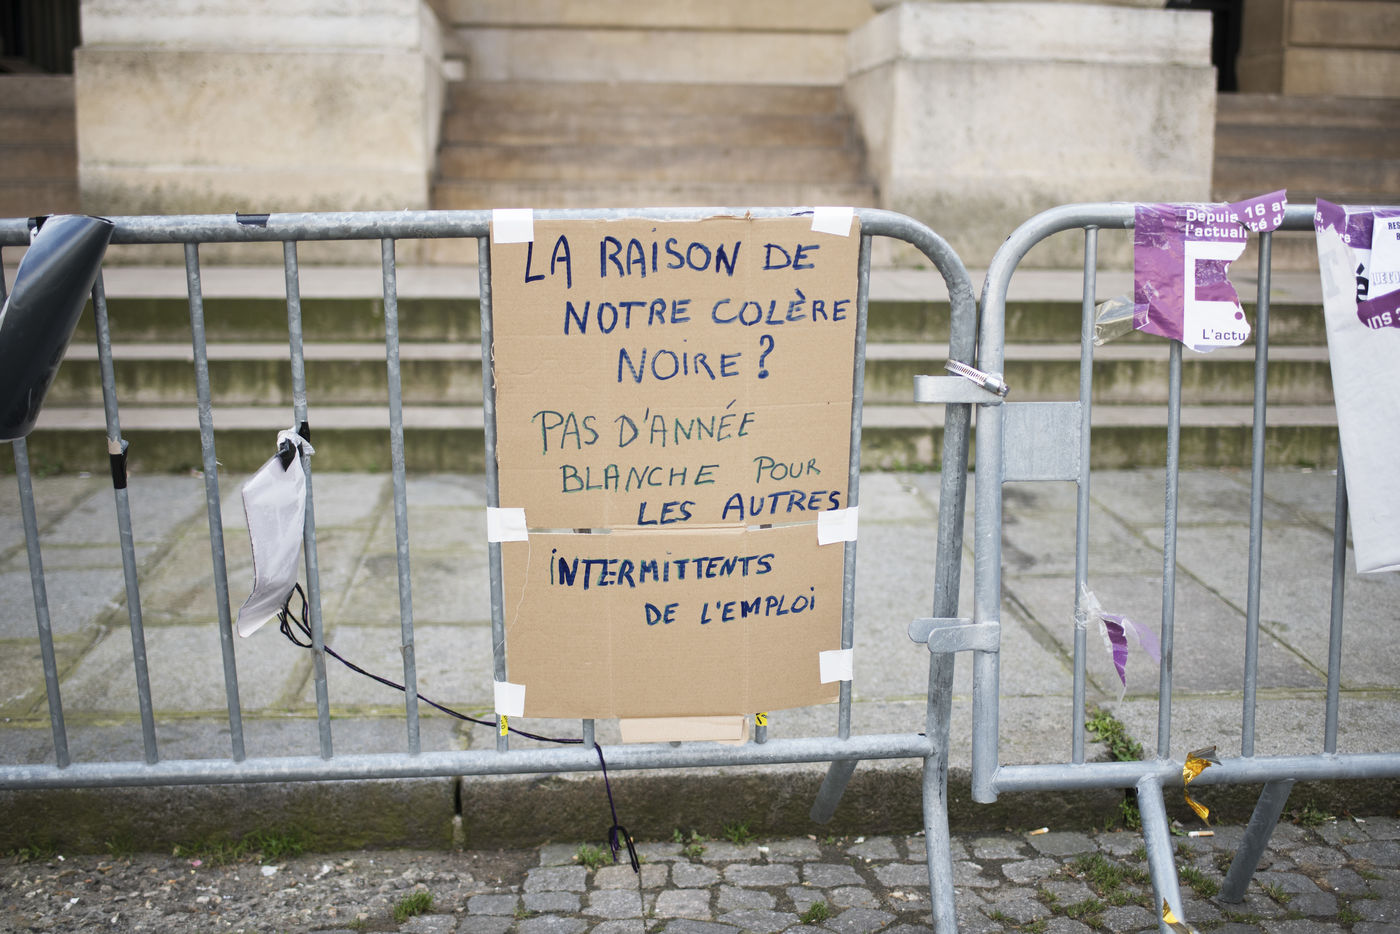 LA RAISON DE
NOTRE COLÈRE
NOIRE ?
PAS D'ANNÉE
BLANCHE POUR
LES AUTRES
INTERMITTENTS
DE L'EMPLOI
Depuis 16
l'actualité
L'actu